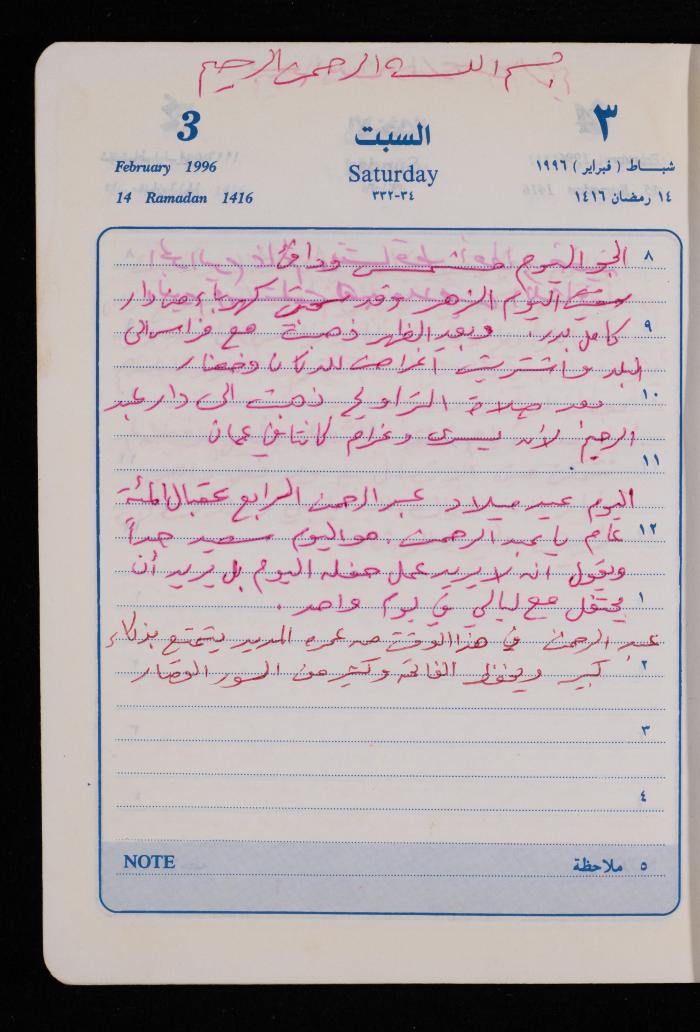 بسم الله الرحمن الرحيم
3 السبت ٣
February 1996 Saturday شباط ( فبراير ) ١٩٩٦
14 Ramadan 1416 ٣٣٢-٣٤ ١٤ رمضان ١٤١٦
٨ الجو اليوم مشمس ودافئ
اليوم الزهر وقد كهرباء دار
٩ كامل بدر. وبعد الظهر ذهبت مع فراس الى
البلد واشتريت أغراض للدكان وخضار
١٠ بعد صلاة التراويح ذهبت الى دار عبد
الرحيم لأن يسرى وغرام كانتا في عمان
١١
اليوم عيد ميلاد عبد الرحمن الرابع عقبال المئة
١٢ عام يا عبد الرحمن. هو اليوم سعيد جداً
ويقول أنه لا يريد عمل حفله اليوم بل يريد أن
١ يحتفل مع ليالي في يوم واحد.
عبد الرحمن في هذا الوقت من عمره المديد يتمتع بذكاء
٢ كبير ويحفظ الفاتحة وكثير من السور القصار
٣
٤
NOTE ٥ ملاحظة